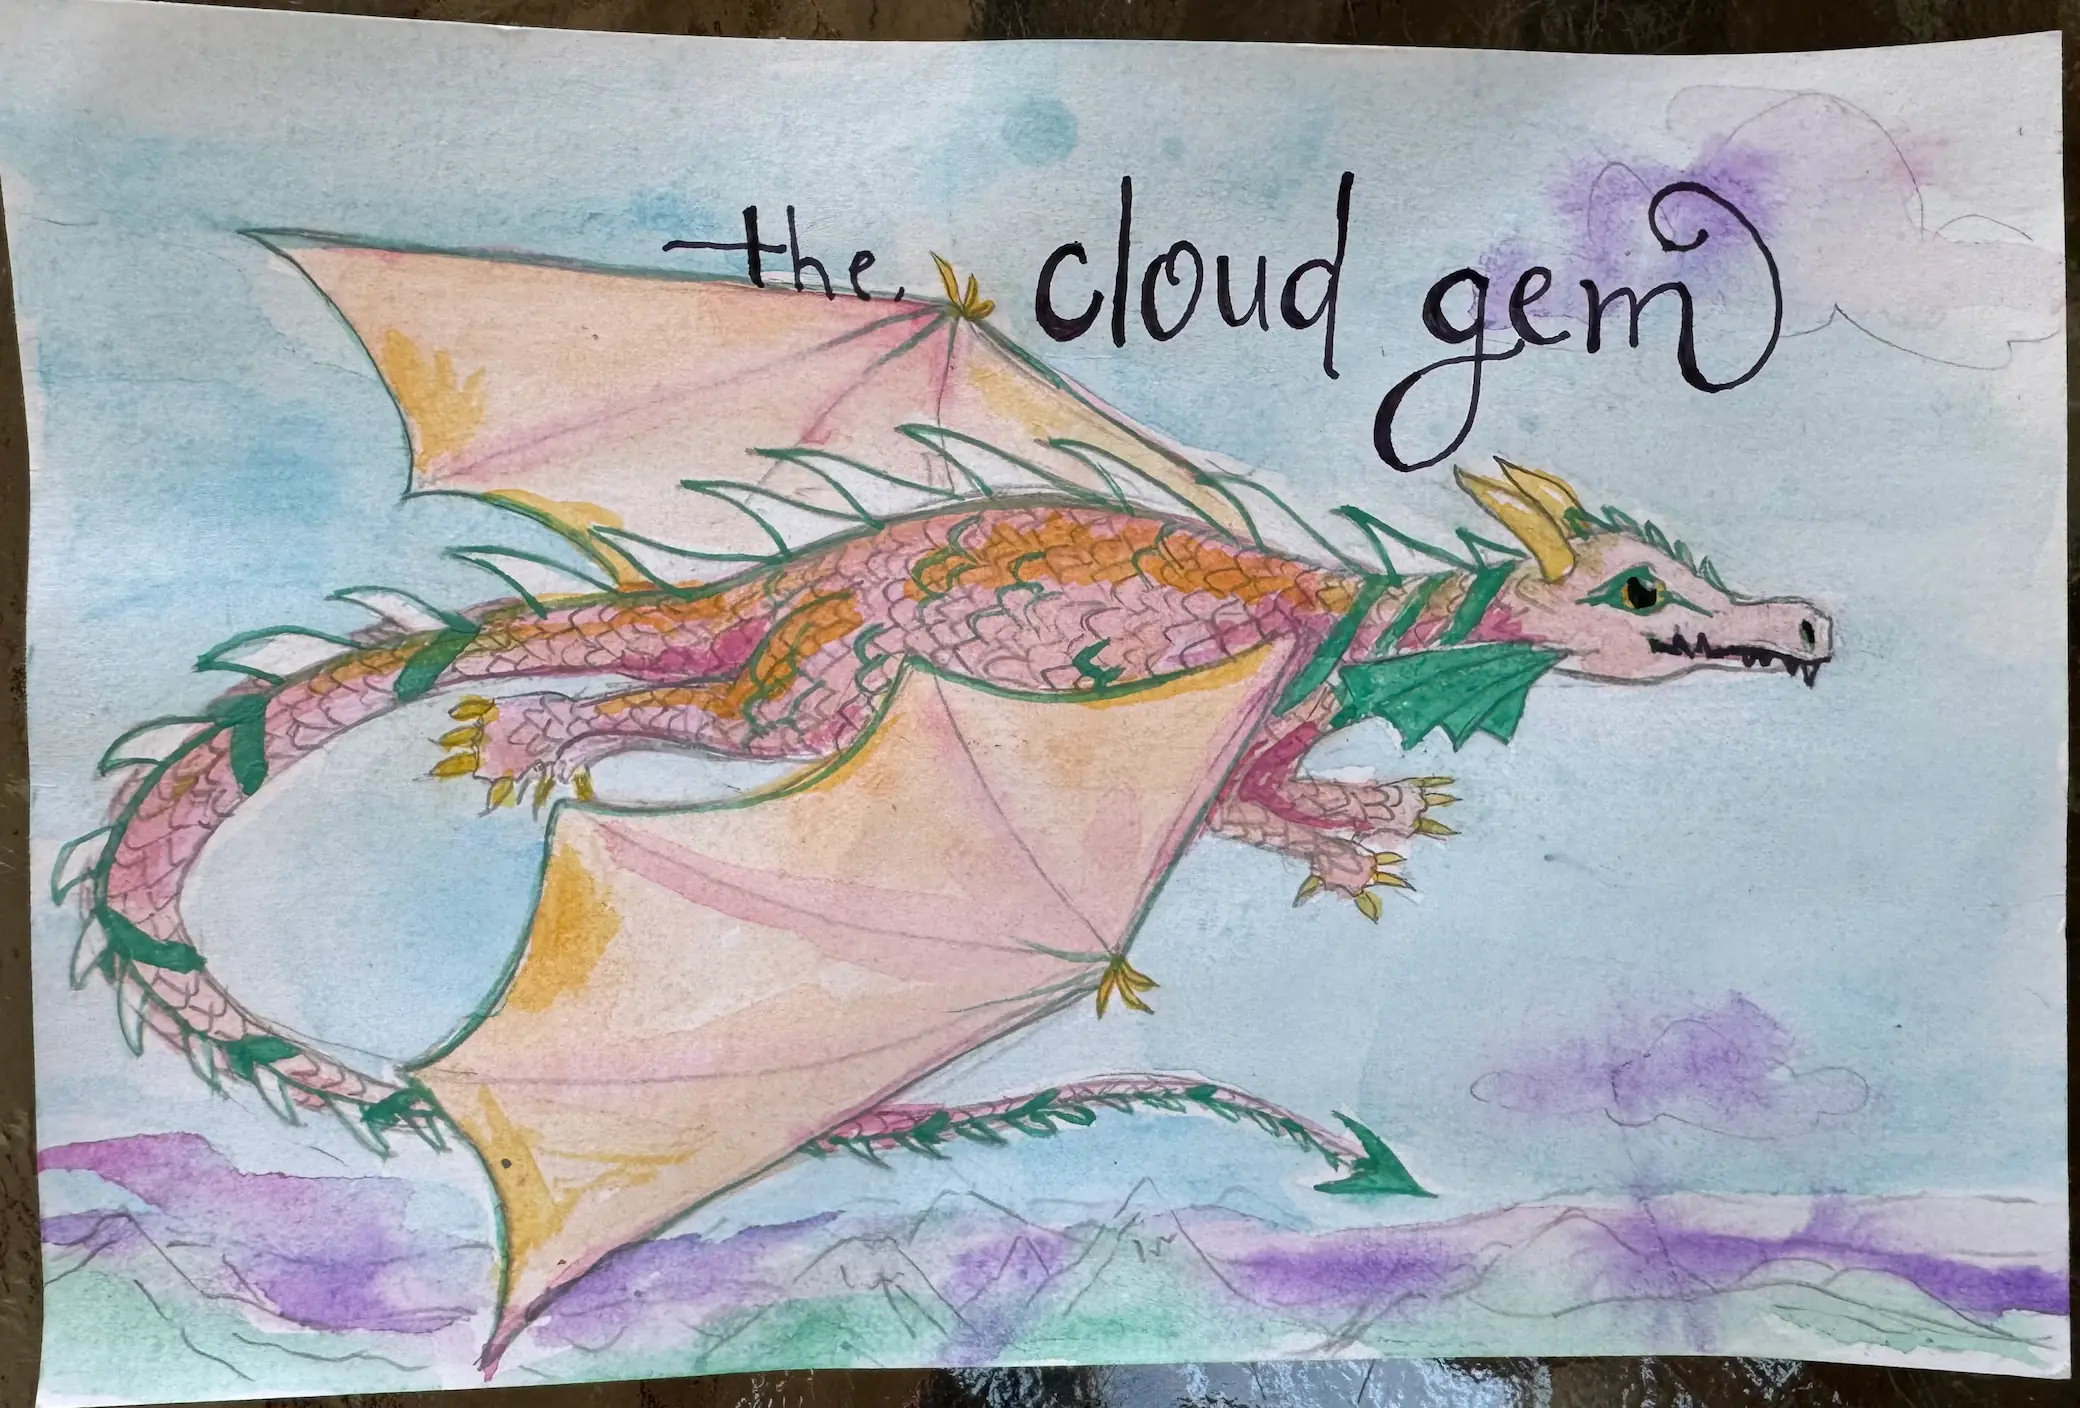 the, cloud gem